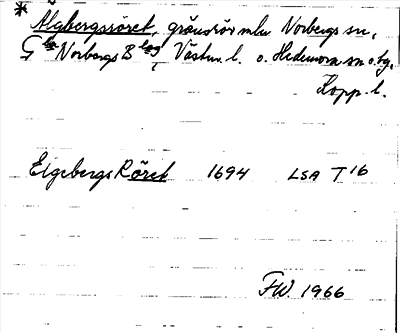 * Älgbergsröret, gränsrör mln Norbergs sn,
Gla Norbergs Blag, Västm. l. o. Hedemora sn o. tg,
Kopp. l.
Elgebergs Röret 1694 LSA T 16
FW. 1966